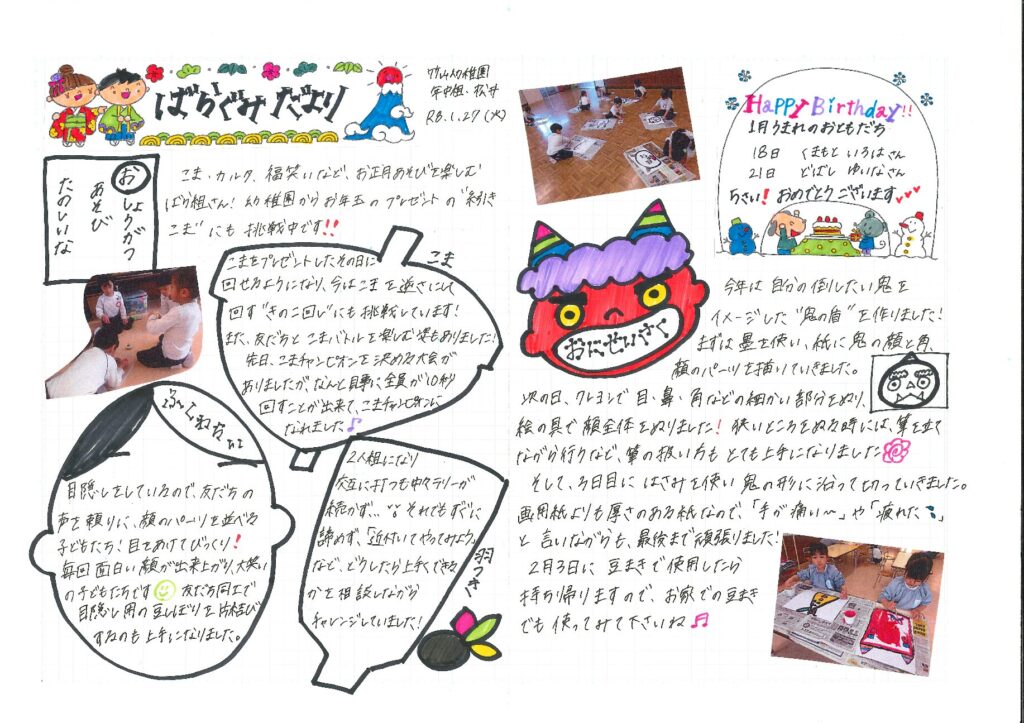 ばらぐみだより
竹山幼稚園
年中組・松井
R8.1.27(火)
おしょうがつ
あそび
たのしいな
こま・カルタ、福笑いなど、お正月あそびを楽しむ
ばら組さん！幼稚園からお年玉のプレゼントの“紐引き
こま”にも挑戦中です!!
こま
こまをプレゼントしたその日に
回せるようになり、今はこまを逆さにして
回す“きのこ回し”にも挑戦しています！
また、友だちとこまバトルを楽しむ姿もありました！
先日、こまチャンピオンを決める大会が
ありましたが、なんと見事に全員が10秒
回すことが出来て、こまチャンピオンに
なれました♪
ふくわらい
目隠しをしているので、友だちの
声を頼りに、顔のパーツを並べる
子どもたち！目をあけてびっくり！
毎回面白い顔が出来上がり、大笑い
の子どもたちです
友だち同士で
目隠し用の豆しぼりを片結び
するのも上手になりました。
羽つき
2人組になり
交互に打つも中々ラリーが
続かず…それでもすぐに
諦めず、「近付いてやってみよう」
など、どうしたら上手くできる
かを相談しながら
チャレンジしていました！
Happy Birthday!!
1月うまれのおともだち
18日 くまもと いろはさん
21日 どばし ゆいなさん
5さい！おめでとうございます
おにせいさく
今年は自分の倒したい鬼を
イメージした“鬼の盾”を作りました！
まずは墨を使い、紙に鬼の顔と角、
顔のパーツを描いていきました。
次の日、クレヨンで目・鼻・角などの細かい部分をぬり、
絵の具で顔全体をぬりました！狭いところをぬる時には、筆を立て
ながら行うなど、筆の扱い方もとても上手になりました
そして、3日目にはさみを使い鬼の形に沿って切っていきました。
画用紙よりも厚さのある紙なので、「手が痛い〜」や「疲れた」
と言いながらも、最後まで頑張りました！
2月3日に豆まきで使用したら
持ち帰りますので、お家での豆まき
でも使ってみて下さいね♫